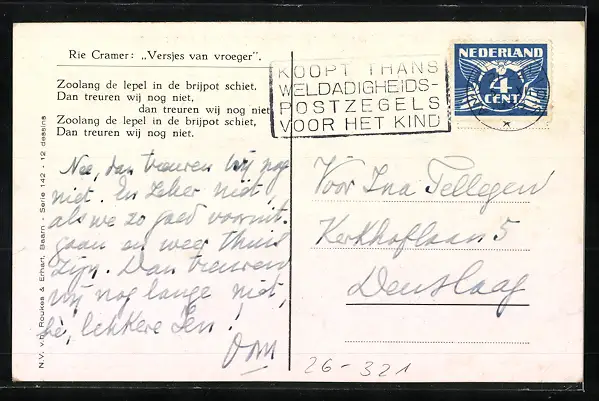 Rie Cramer: „Versjes van vroeger".
Zoolang de lepel in de brijpot schiet.
Dan treuren wij nog niet,
dan treuren wij nog niet
Zoolang de lepel in de brijpot schiet,
Dan treuren wij niet.
Nee, dan treuren wij nog
niet. En zeker niet,
als we zo goed vooruit-
gaan en weer thuis
zijn. Dan treuren
wij nog lange niet,
hè, lekkere Ien!
Oom
N.V. v.h. Roukes & Erhart, Baarn - Serie 142 - 12 dessins
KOOPT THANS
WELDADIGHEIDS-
POSTZEGELS
VOOR HET KIND
NEDERLAND
4
CENT
Voor Ina Tellegen
Kerkhoflaan 5
Den Haag
26-321